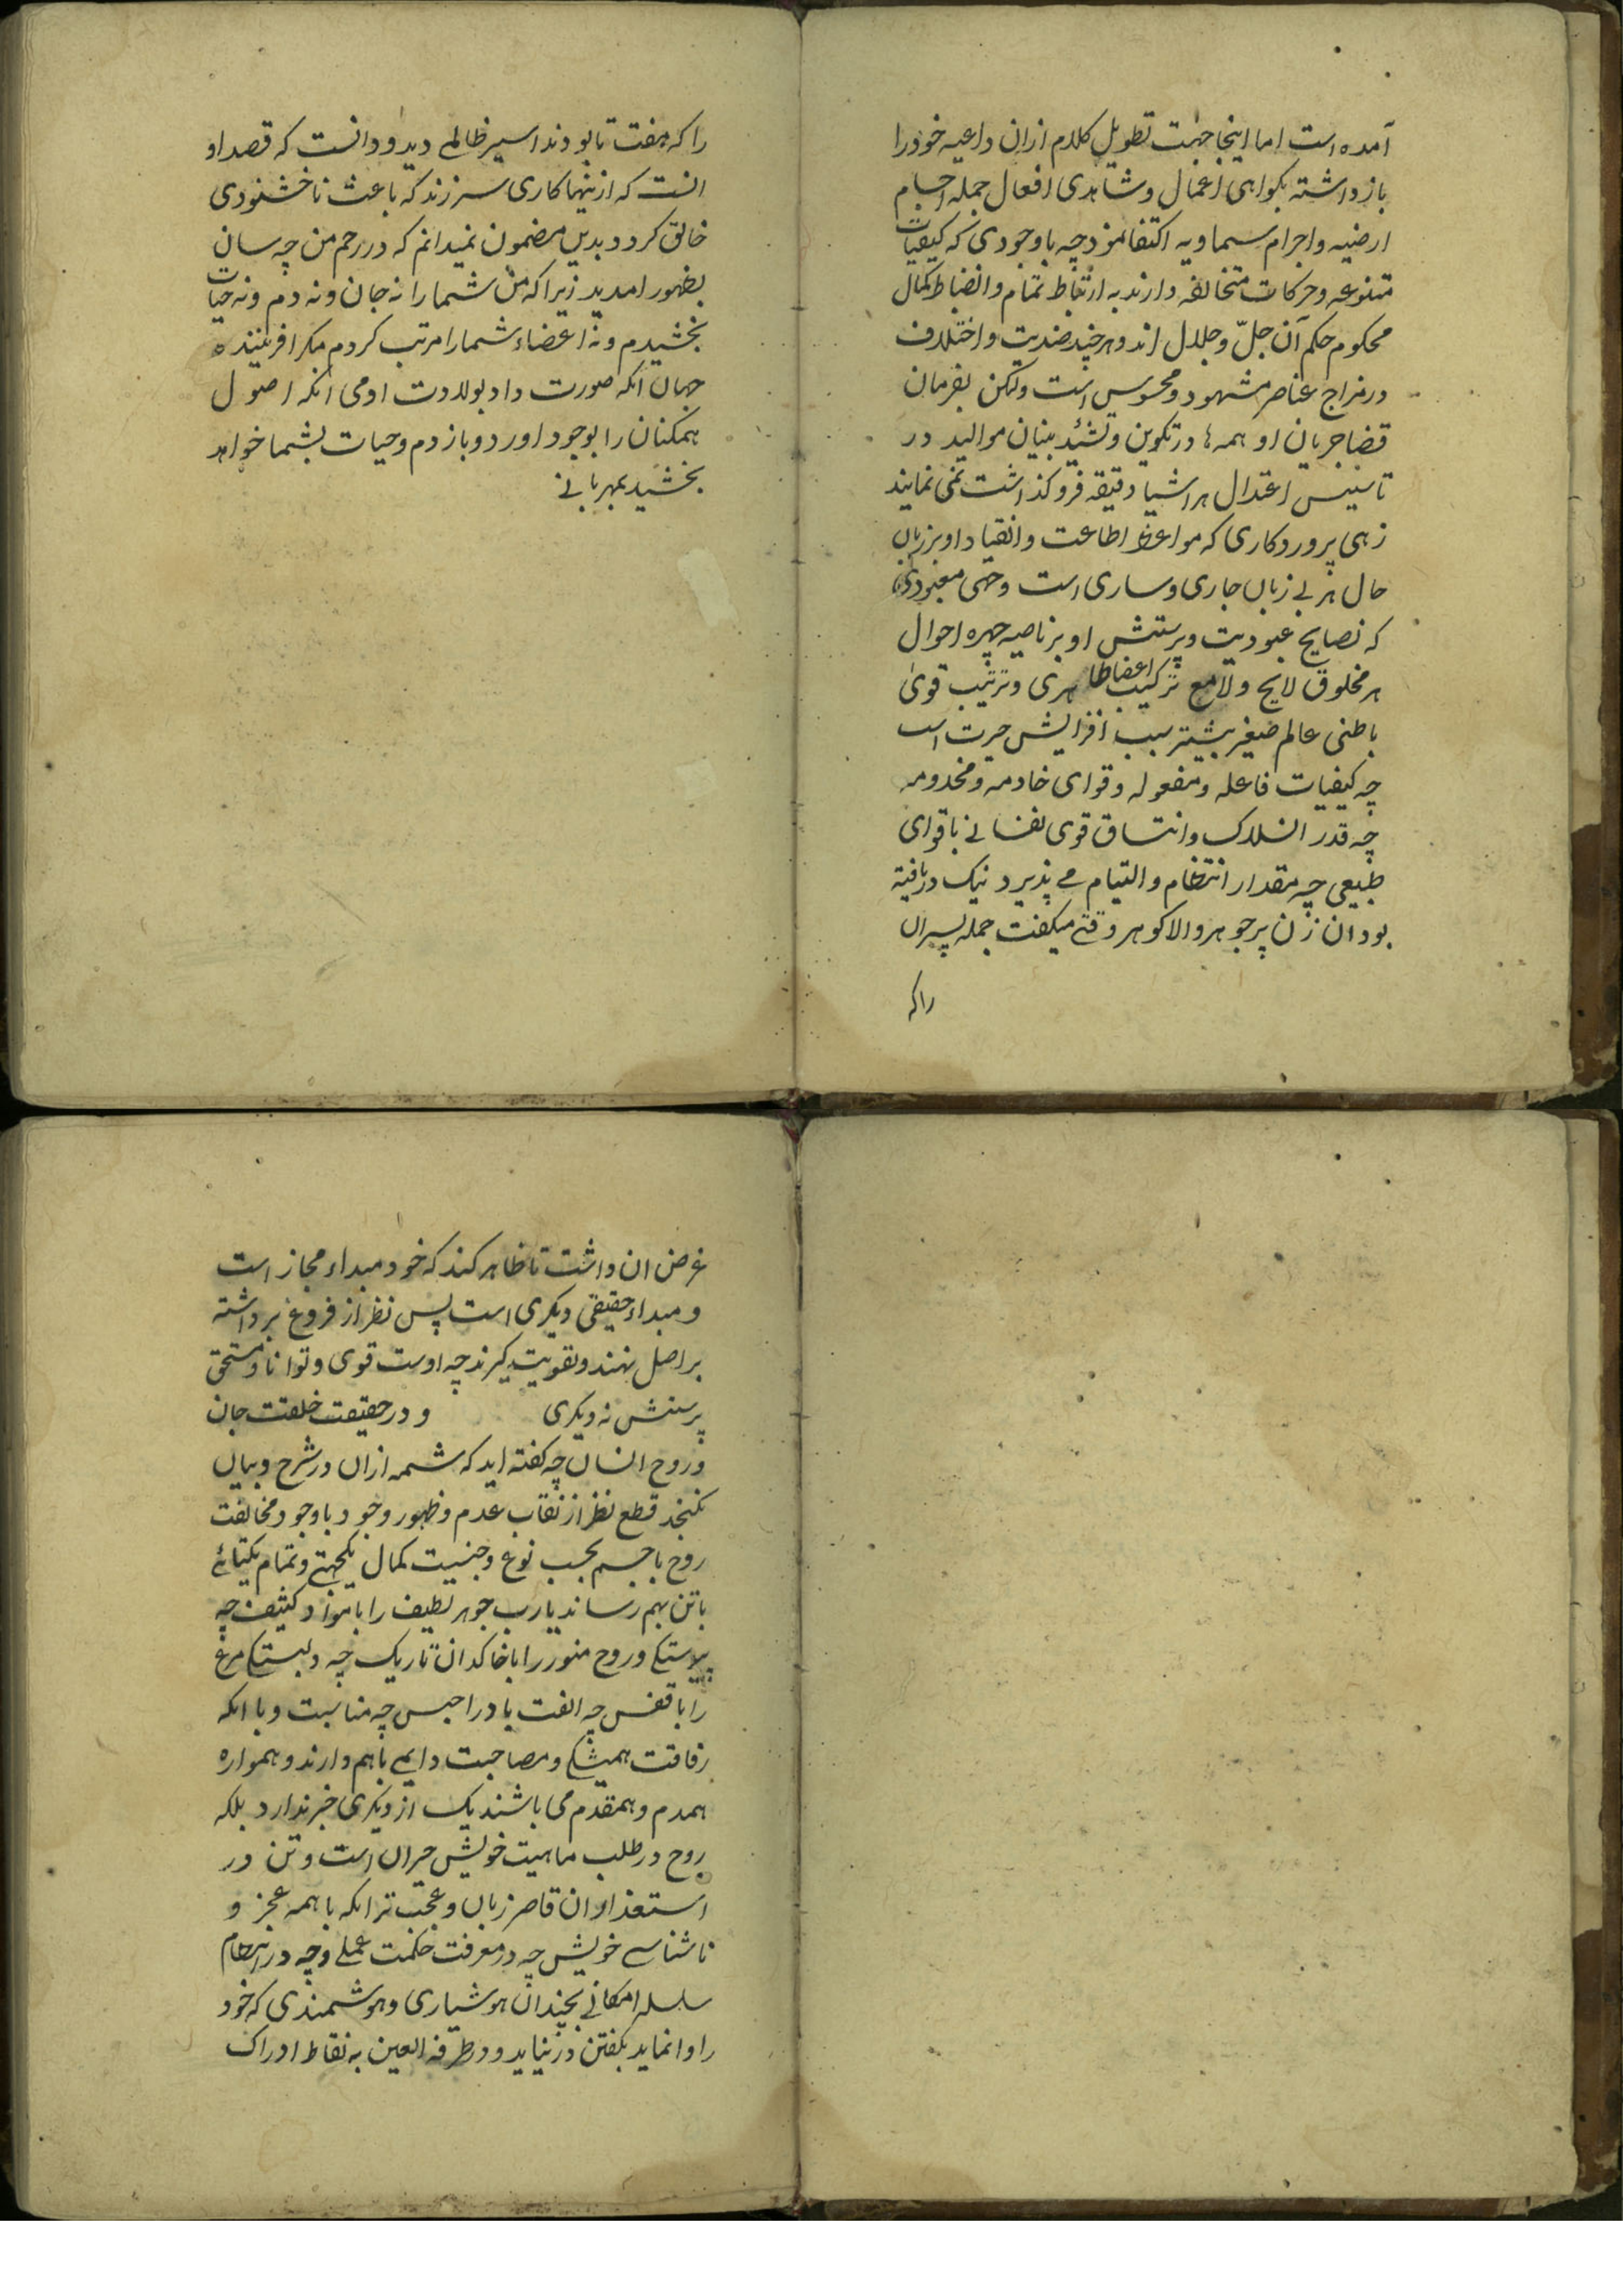 آمده است اما اینجا جهت تطویل کلام ازان داعیه خود را
باز داشته بکواهی اعمال و شاهدی افعال جمله اجسام
ارضیه و اجرام سماویه اکتفا نمود چه با وجودی که کیفیات
متنوعه و حرکات متخالفه دارند به ارتباط تمام و انضباط کمال
محکوم حکم آن جلّ و جلال اند و هر چند ضدیت و اختلاف
در مزاج عناصر مشهود و محسوس است ولکن بفرمان
قضا جریان او همه ها در تکوین و تشئید بنیان موالید در
تاسیس اعتدال هر اشیا دقیقه فروکذاشت نمی نمایند
زهی پروردکاری که مواعظ اطاعت و انقیاد او بر زبان
حال هر بی زبان جاری و ساری است و خهی معبودی
که نصایح عبودیت و پرستش او بر ناصیه چهره احوال
هر مخلوق لایح و لامع ترکیب اعضا ظاهری و ترتیب قوی
باطنی عالم صغیر بیشتر سبب افزایش حیرت است
چه کیفیات فاعله و منفعوله و قوای خادمه و مخدومه
چه قدر انسلاک و اتساق قوی نفسانی با قوای
طبیعی چه مقدار انتظام و التیام می پذیرد نیک دریافته
بود ان زن پر جوهر والا کوهر وقتی میکفت جمله پسران
راکه
را که هفت تا بودند اسیر ظالمی دید و دانست که قصد او
انست که از ینها کاری سر زند که باعث ناخشنودی
خالق کردد بدین مضمون نمیدانم که در رحم من چه سان
بظهور امدید زیرا که من شما را نه جان و نه دم و نه حیات
بخشیدم و نه اعضاء شما را مرتب کردم مکر افریننده
جهان انکه صورت داد بولادت ادمی انکه اصول
همکنان را بوجود اورد و باز دم و حیات بشما خواهد
بخشید بمهربانی
غرض ان داشت تا ظاهر کند که خود مبداء مجاز است
و مبداء حقیقی دیکری است پس نظر از فروغ برداشته
بر اصل نهند و تقویت کیرند چه اوست قوی و توانا و مستحق
پرستش نه دیکری و در حقیقت خلقت جان
و روح انسان چه کفته اید که شمه ازان در شرح و بیان
نکنجد قطع نظر از نقاب عدم و ظهور وجود با وجود مخالفت
روح با جسم بحسب نوع و جنسیت کمال یکجهتی و تمام یکتائی
با تن بهم رساند یارب جوهر لطیف را با مواد کثیف چه
پیوستکی و روح منور را با خاکدان تاریک چه دلبستکی مرغ
را با قفس چه الفت باد را حبس چه مناسبت و با انکه
رفاقت همیشکی و مصاحبت دایمی باهم دارند و همواره
همدم و همقدم می باشند یک از دیکری خبر ندارد بلکه
روح در طلب ماهیت خویش حیران است و تن در
ان قاصر زبان و عجب تر انکه با همه عجز و
ناشناسی خویش چه در معرفت حکمت عملی و چه در انتظام
سلسله امکانی بچندان هوشیاری و هوشمندی که خود
را وا نماید بکفتن در نیاید و در طرفه العین به نقاط ادراک